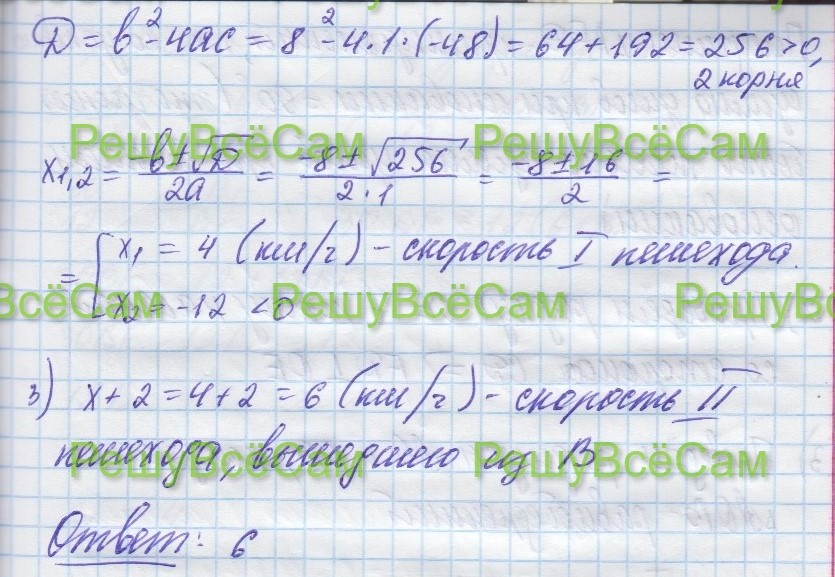 Д = b² - 4ac = 8² - 4·1·(-48) = 64 + 192 = 256 > 0,
2 корня
РешуВсёСам РешуВсёСам
x1,2 = (-b ± √Д)/(2a) = (-8 ± √256)/(2·1) = (-8 ± 16)/2 =
= [ x1 = 4 (км/ч) - скорость I пешехода.
x2 = -12 < 0
РешуВсёСам РешуВсёСам РешуВсёСам
3) x + 2 = 4 + 2 = 6 (км/ч) - скорость II
пешехода, вышедшего из В
РешуВсёСам РешуВсёСам
Ответ: 6